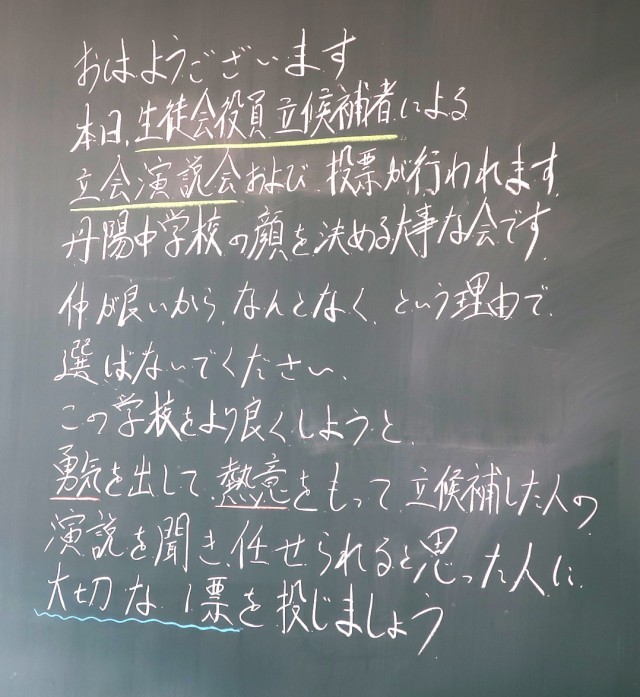 おはようございます
本日、生徒会役員立候補者による
立会演説会および、投票が行われます。
丹陽中学校の顔を決める大事な会です。
仲が良いから、なんとなく、という理由で
選ばないでください、
この学校をより良くしようと、
勇気を出して熱意をもって立候補した人の
演説を聞き、任せられると思った人に
大切な1票を投じましょう